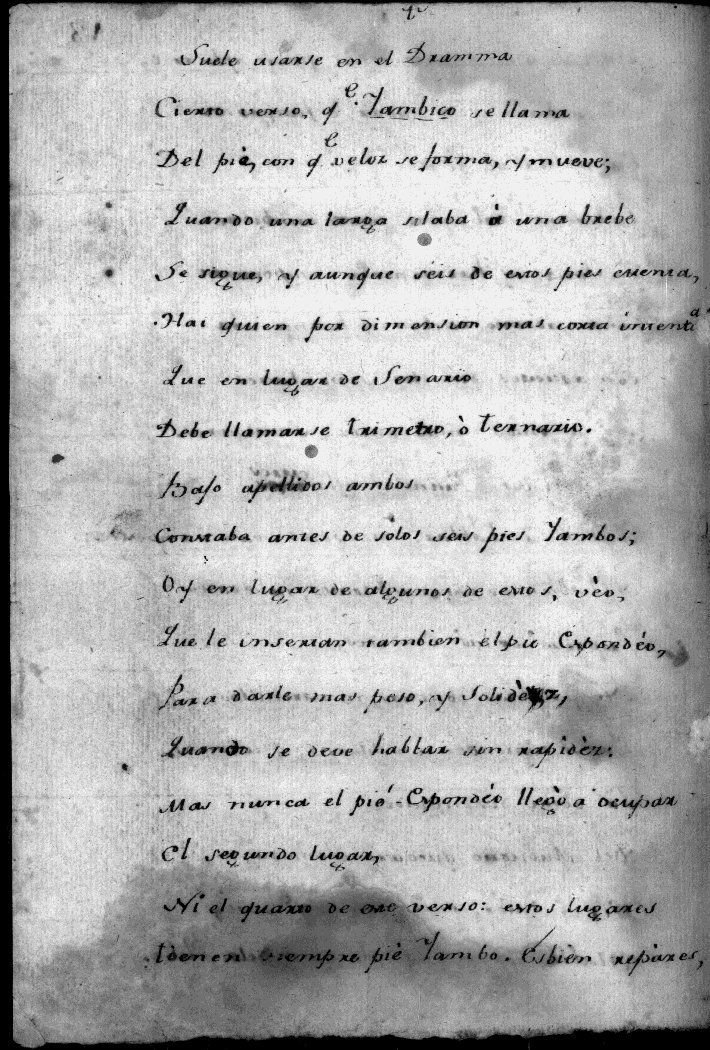 Suele usarse en el Dramma
Cierto verso, qe. Yambico se llama
Del piè, con qe veloz se forma, y mueve;
Quando una larga silaba à una brebe
Se sigue, y aunque seis de estos pies cuenta,
Hai quien por dimension mas corta inventa
Que en lugar de Senario
Debe llamarse trimetro, ò ternario.
Bajo apellidos ambos
Constaba antes de solos seis pies Yambos;
Oy en lugar de algunos de estos, vèo,
Que le insertan tambien el pie Espondéo,
Para darle mas peso, y Solidèz,
Quando se deve hablar sin rapidèz.
Mas nunca el pié Espondéo llegò a ocupar
El segundo lugar,
Ni el quarto de este verso: estos lugares
tienen siempre piè Yambo. Es bien repàres,